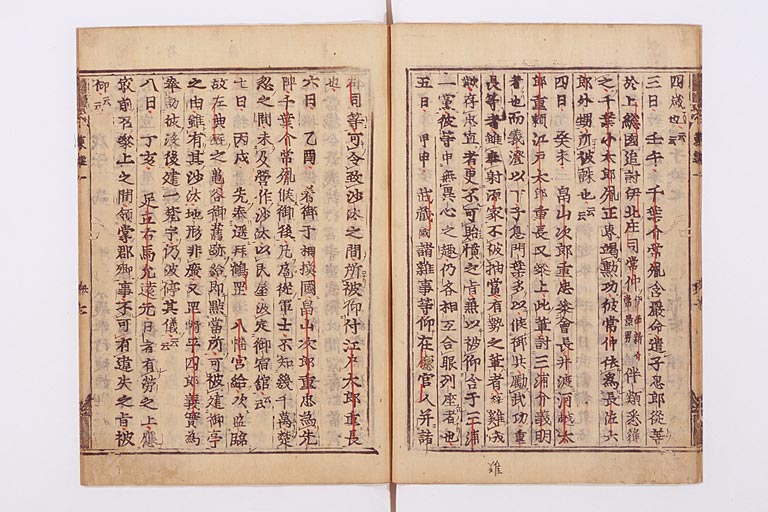 四歳也云云
三日 壬午 千葉介常胤含嚴命遣子息郎從等
於上総國追討伊北庄司常仲伊南新介常景男伴類悉獲
之千葉小太郎胤正専竭勲功彼常仲依為長佐六
郎外甥所被誅也云云
四日 癸未 畠山次郎重忠參會長井渡河越太
郎重頼江戸太郎重長又參上此輩討三浦介義明
者也而義澄以下子息門葉多以候御共勵武功重
長等者雖奉射源家不被抽賞有勢之輩者難成
歟存忠直者更不可貽憤之旨兼以被仰含于三浦
一黨彼等申無異心之趣仍各相互合眼列座者也
五日 甲申 武藏國諸雜事等仰在廳官人并諸
雖
郡司等可令致沙汰之間所被仰付江戸太郎重長
也
六日 乙酉 着御于相摸國畠山次郎重忠為先
陣千葉介常胤候御後凡扈從軍士不知幾千萬楚
忽之間未及營作沙汰以民屋被定御宿舘云云
七日 丙戌 先奉遥拜鶴罡八幡宮給次監臨
故左典厩之亀谷御舊跡給即點當所可被建御亭
之由雖有其沙汰地形非廣又罡崎平四郎義實為
奉彼没後建一梵宇仍被停其儀云云
八日 丁亥 足立右馬允遠元日者有勞之上應
最前召參上之間領掌郡郷事不可有違失之旨被
仰云云